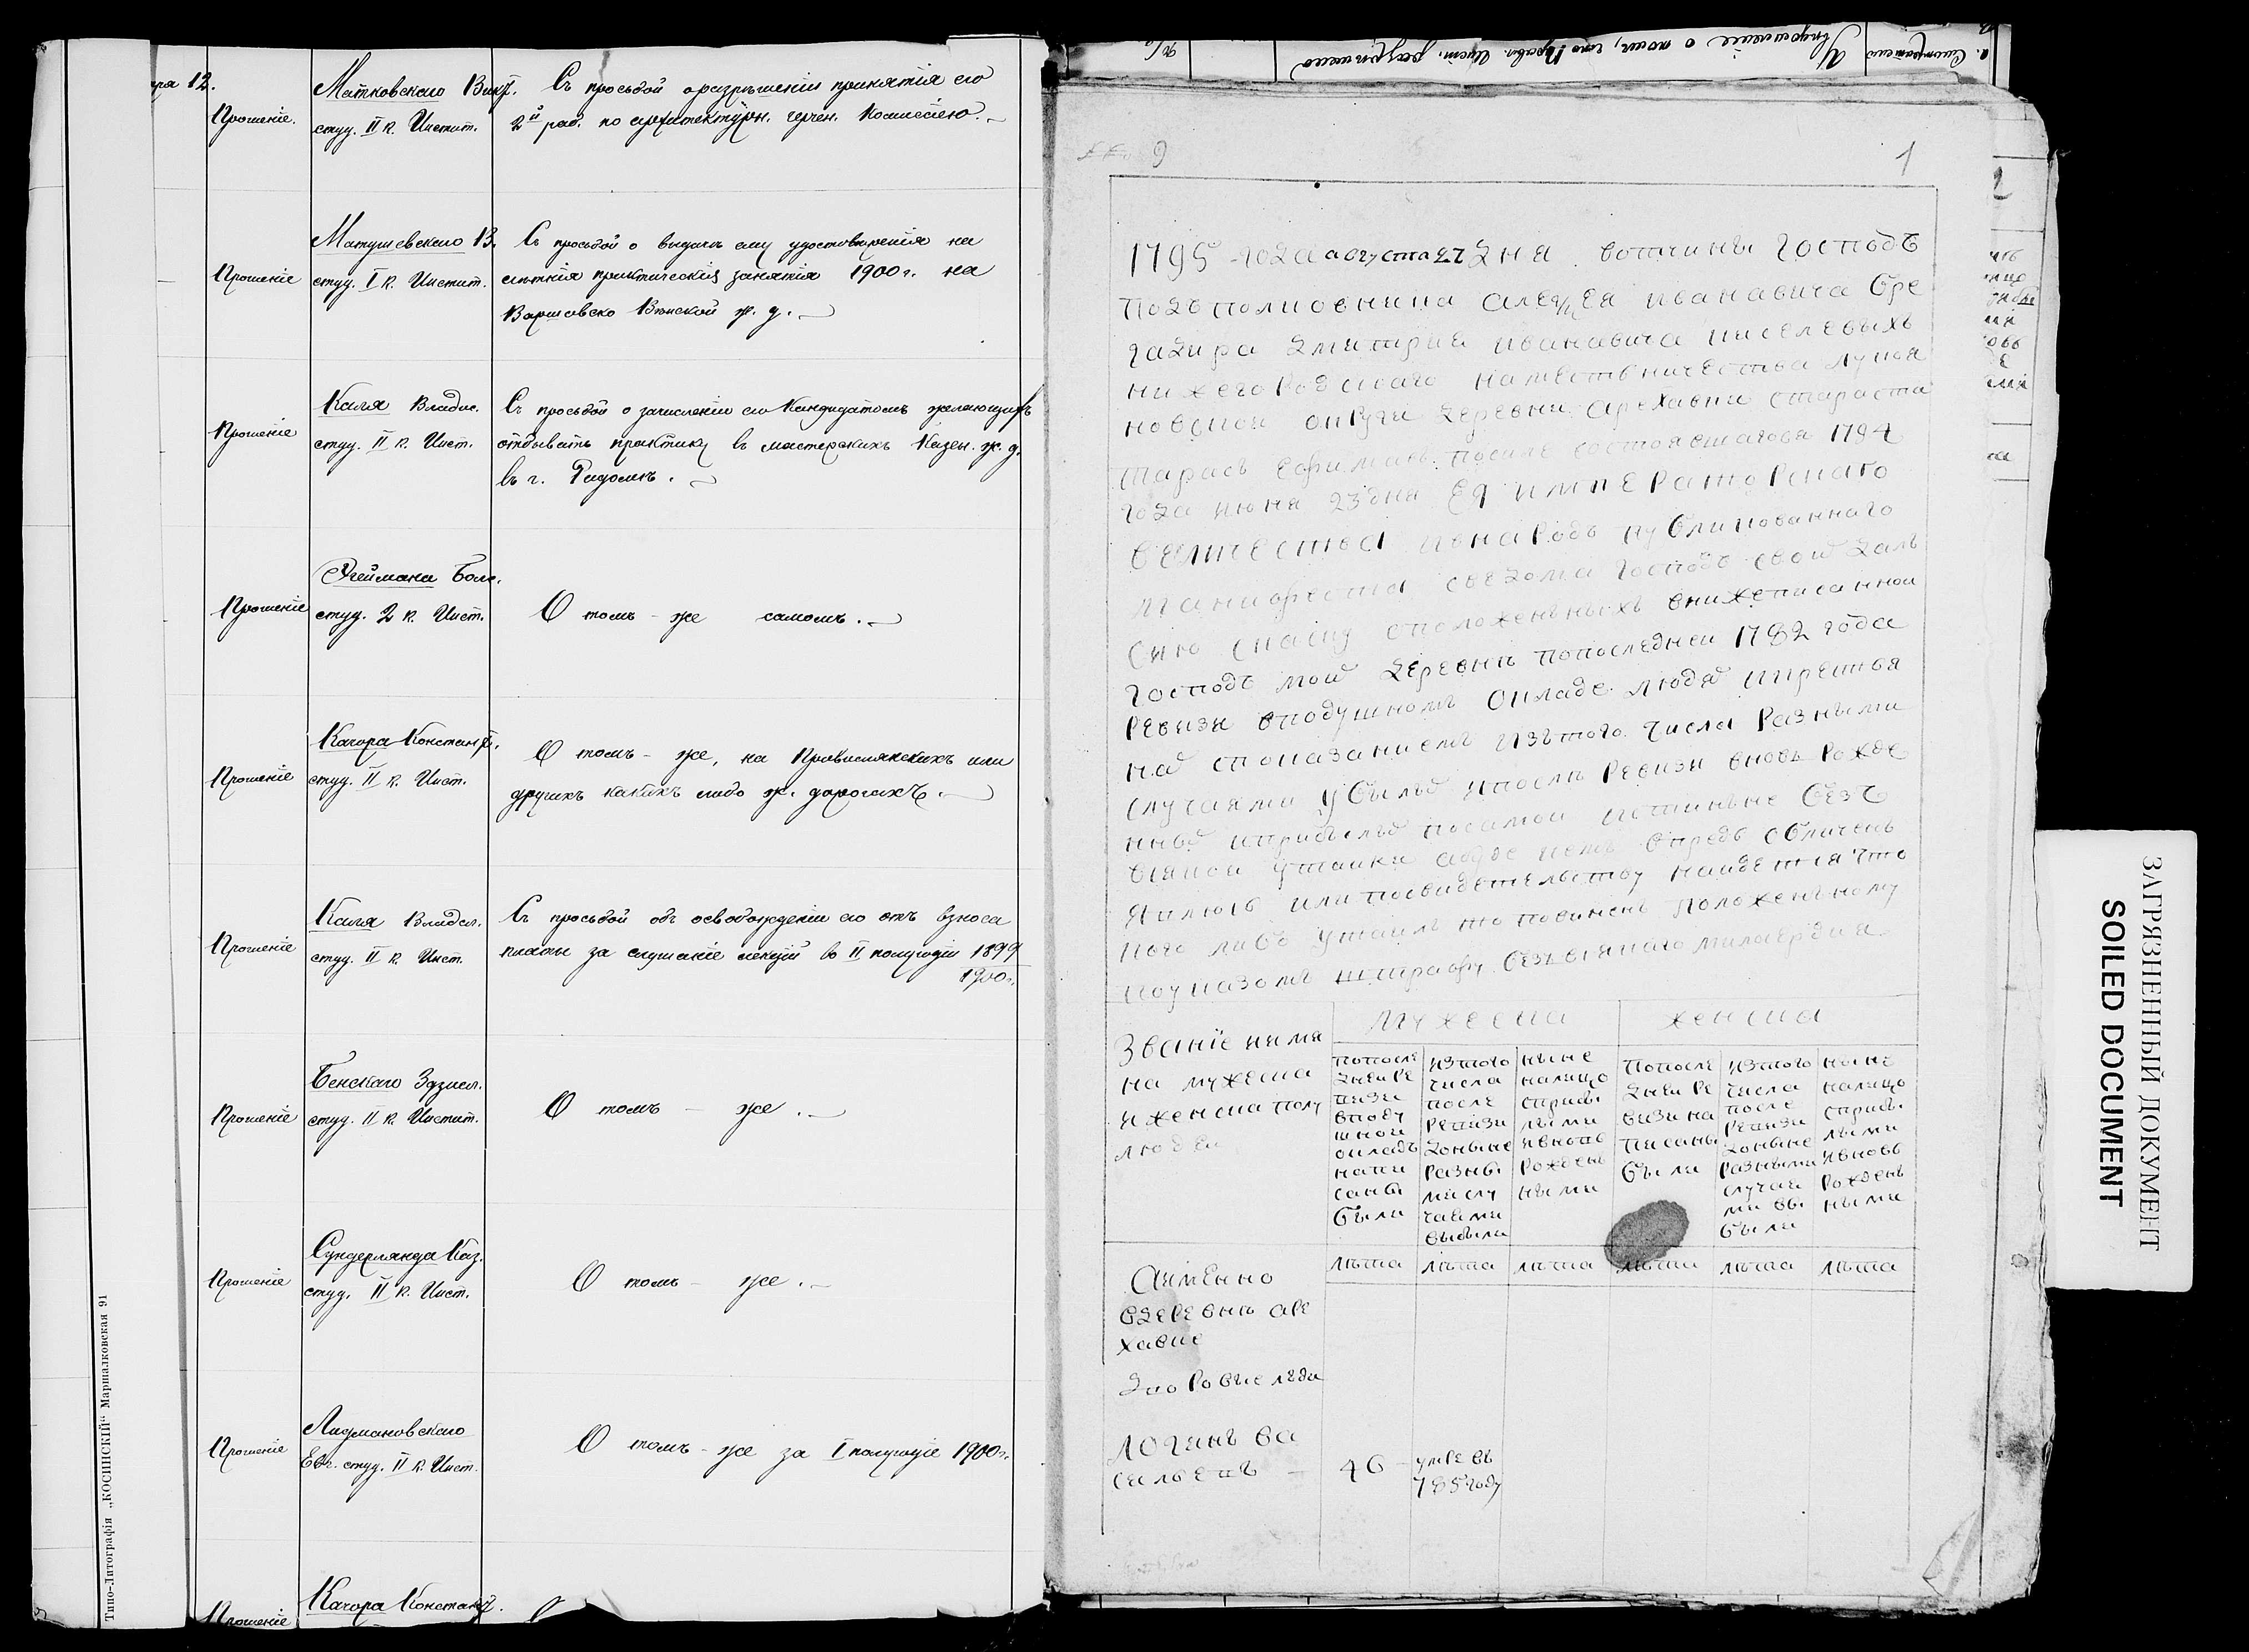 ра 12.
Прошеніе.
Матковскаго Викт.
студ. II к. Инстит.
Съ просьбой о разрѣшеніи принятія его
2й раб. по архитектурн. черчен. Комиссіею.
Прошеніе
Матушевскаго В.
студ. I к. Инстит.
Съ просьбой о выдачѣ ему удостовѣренія на
лѣтнія практическія занятія 1900 г. на
Варшавско Вѣнской ж. д.
Прошеніе
Каля Владис.
студ. II к. Инст.
Съ просьбой о зачисленіи его Кандидатомъ желающихъ
отбывать практику въ мастерскихъ Казен. ж. д.
въ г. Радомѣ.
Прошеніе
студ. 2 к. Инст.
О томъ-же самомъ.
Прошеніе
Качора Констант.
студ. II к. Инст.
О томъ-же, на Привислянскихъ или
другихъ какихъ либо ж. дорогахъ.
Прошеніе
Каля Владсл.
студ. II к. Инст.
Съ просьбой объ освобожденіи его отъ взноса
платы за слушаніе лекцій во II полугодіи 1899
1900 г.
Прошеніе
Бенскаго Здзисл.
студ. II к. Инстит.
О томъ - же.
Прошеніе
Сундерлянда Каз.
студ. II к. Инст.
О томъ - же.
Прошеніе
Лисмановскаго
Евг. студ. II к. Инст.
О томъ-же за I полугодіе 1900 г.
Прошеніе
Качора Констант.
Типо-Литографія „КОСИНСКІЙ“ Маршалковская 91
9
1
1795 года августа 27 дня вотчины господъ
подъполковника алеѯея ивановича бре
гадира дмитрия ивановича киселевыхъ
нижегородскаго наместничества лукоя
новской округи деревни арехавки староста
тарасъ ефимавъ после состоявшагося 1794
года июня 23 дня Ея императорскаго
величества и внародъ публикованнаго
манифеста сведома господъ своих далъ
сию скаску оположенъныхъ внижеписанной
господъ моих деревнѣ попоследней 1782 года
ревизи вподушномъ окладе людях икрестья
нах споказаниемъ изътого числа разными
случаями убылых ипослѣ ревизи вновь рожде
нных иприбылых посамои истинъне безъ
всякои утаики аежели кемъ впредь обличенъ
явлюсь или посвидетелству найдется что
кого либо утаилъ то повиненъ положенному
поуказомъ штрафу безъ всякаго милосердия
Званіе имя
на мужеска
и женска полу
людей
мужеска
женска
попосле
дней ре
визи
вподу
шной
окладъ
напи
саны
были
изтого
числа
после
ревизи
доныне
разны
ми слу
чаями
выбыли
ныне
налицо
сприбы
лыми
ивновь
рожден
ными
попосле
дней ре
визи на
писаны
были
изтого
числа
после
ревизи
доныне
разными
случаи
ми вы
были
ныне
налицо
сприбы
лыми
ивновь
рожденъ
ными
лѣта лѣта лѣта лѣта лѣта лѣта
Аименно
вдеревнѣ аре
хавке
дворовые люди
Логинъ ва
сильевъ
46
умре въ
785 году
2
ЗАГРЯЗНЕННЫЙ ДОКУМЕНТ
SOILED DOCUMENT